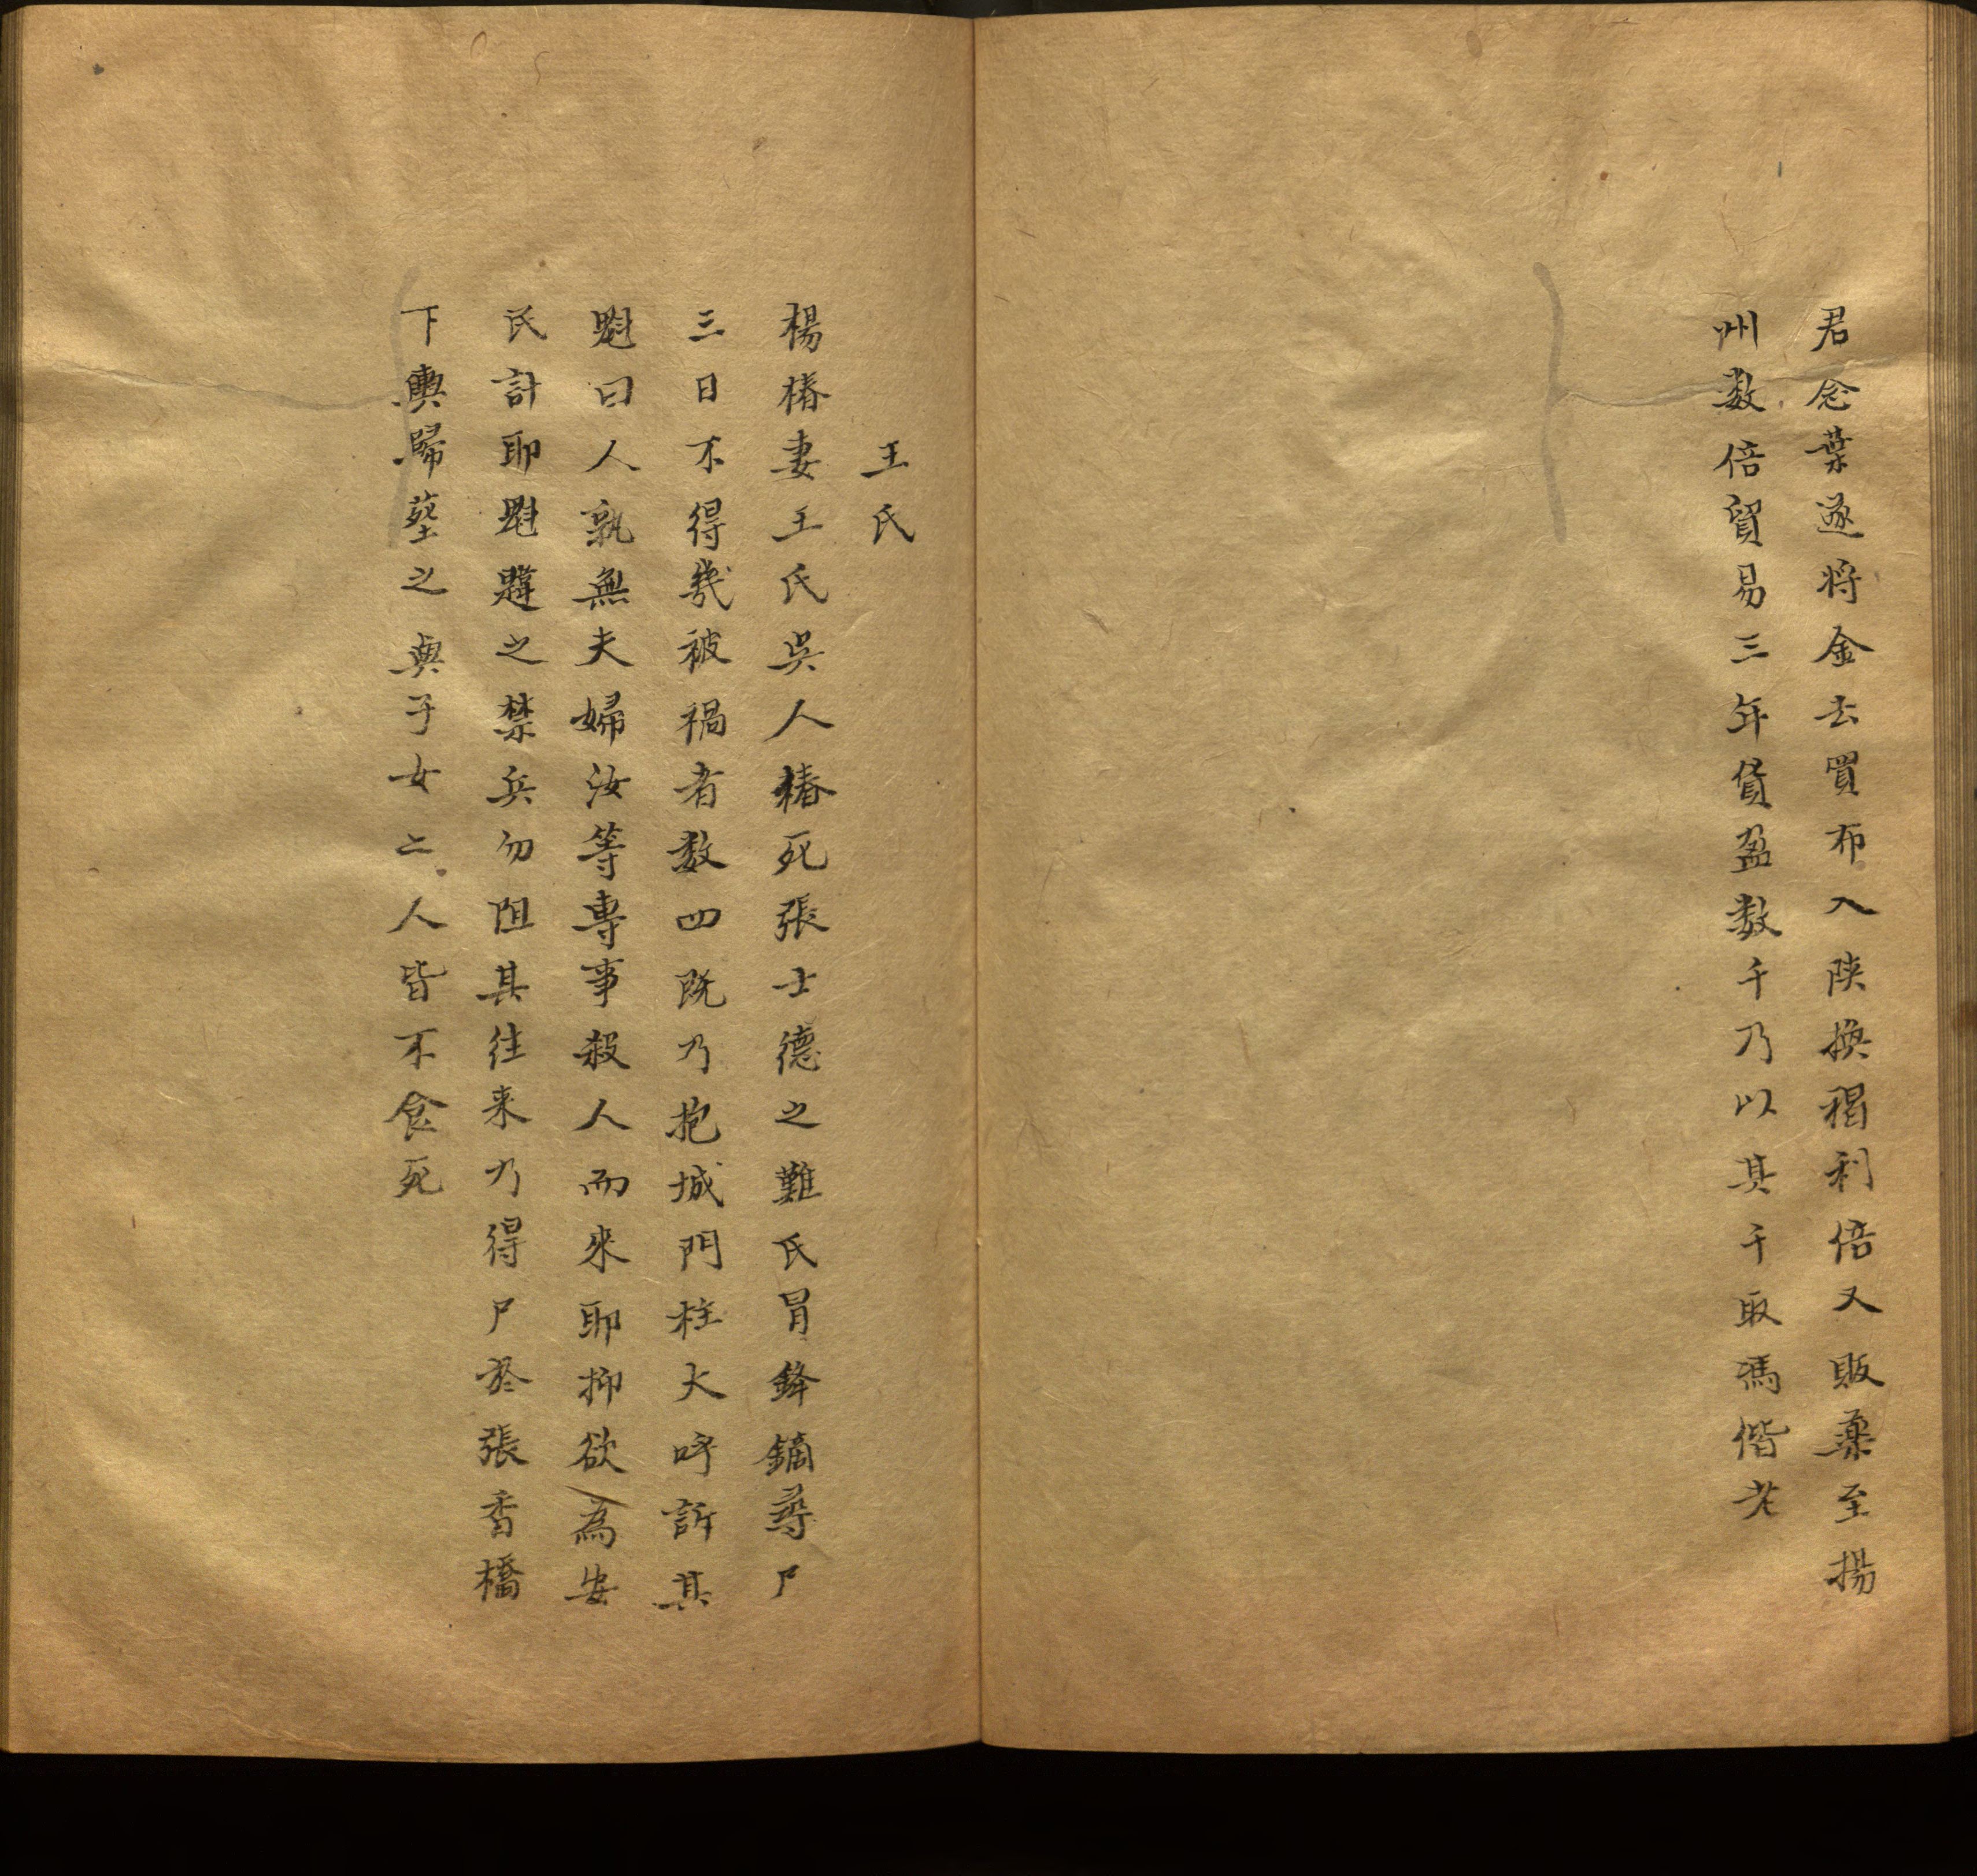 君念葉遂將金去買布入陝換褐利倍又販藥至揚
州数倍貿易三年貨盈数千乃以其千取馮偕老
王氏
楊椿妻王氏吳人椿死張士德之難氏冒鋒鏑尋尸
三日不得幾被禍者数四既乃抱城門柱大呼訴其
魁曰人孰無夫婦汝等專事殺人而来耶抑欲為安
民計耶魁韙之禁兵勿阻其往来乃得尸於張香橋
下輿歸葬之與子女二人皆不食死